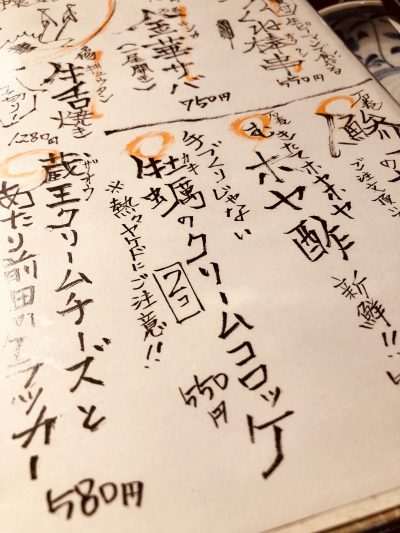 570円
金華サバ
(一尾開き)
750円
牛舌焼き
1280円
ご注文頂い
きたてホヤホヤ
ホヤ酢
新鮮!!
手づくりじゃない
カキ
牡蠣のクリームコロッケ
1コ
550円
※熱々ヤケドにご注意!!
ザオウ
蔵王クリームチーズと
あたり前田のクラッカー
580円